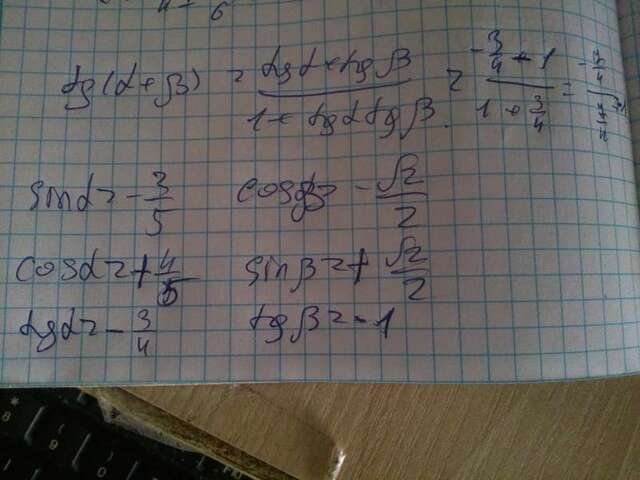 tg(α+β) = (tgα+tgβ)/(1-tgα tgβ) = (-3/4 - 1)/(1 - 3/4) =
sinα = -3/5 cosβ = -√2/2
cosα = +4/5 sinβ = +√2/2
tgα = -3/4 tgβ = -1